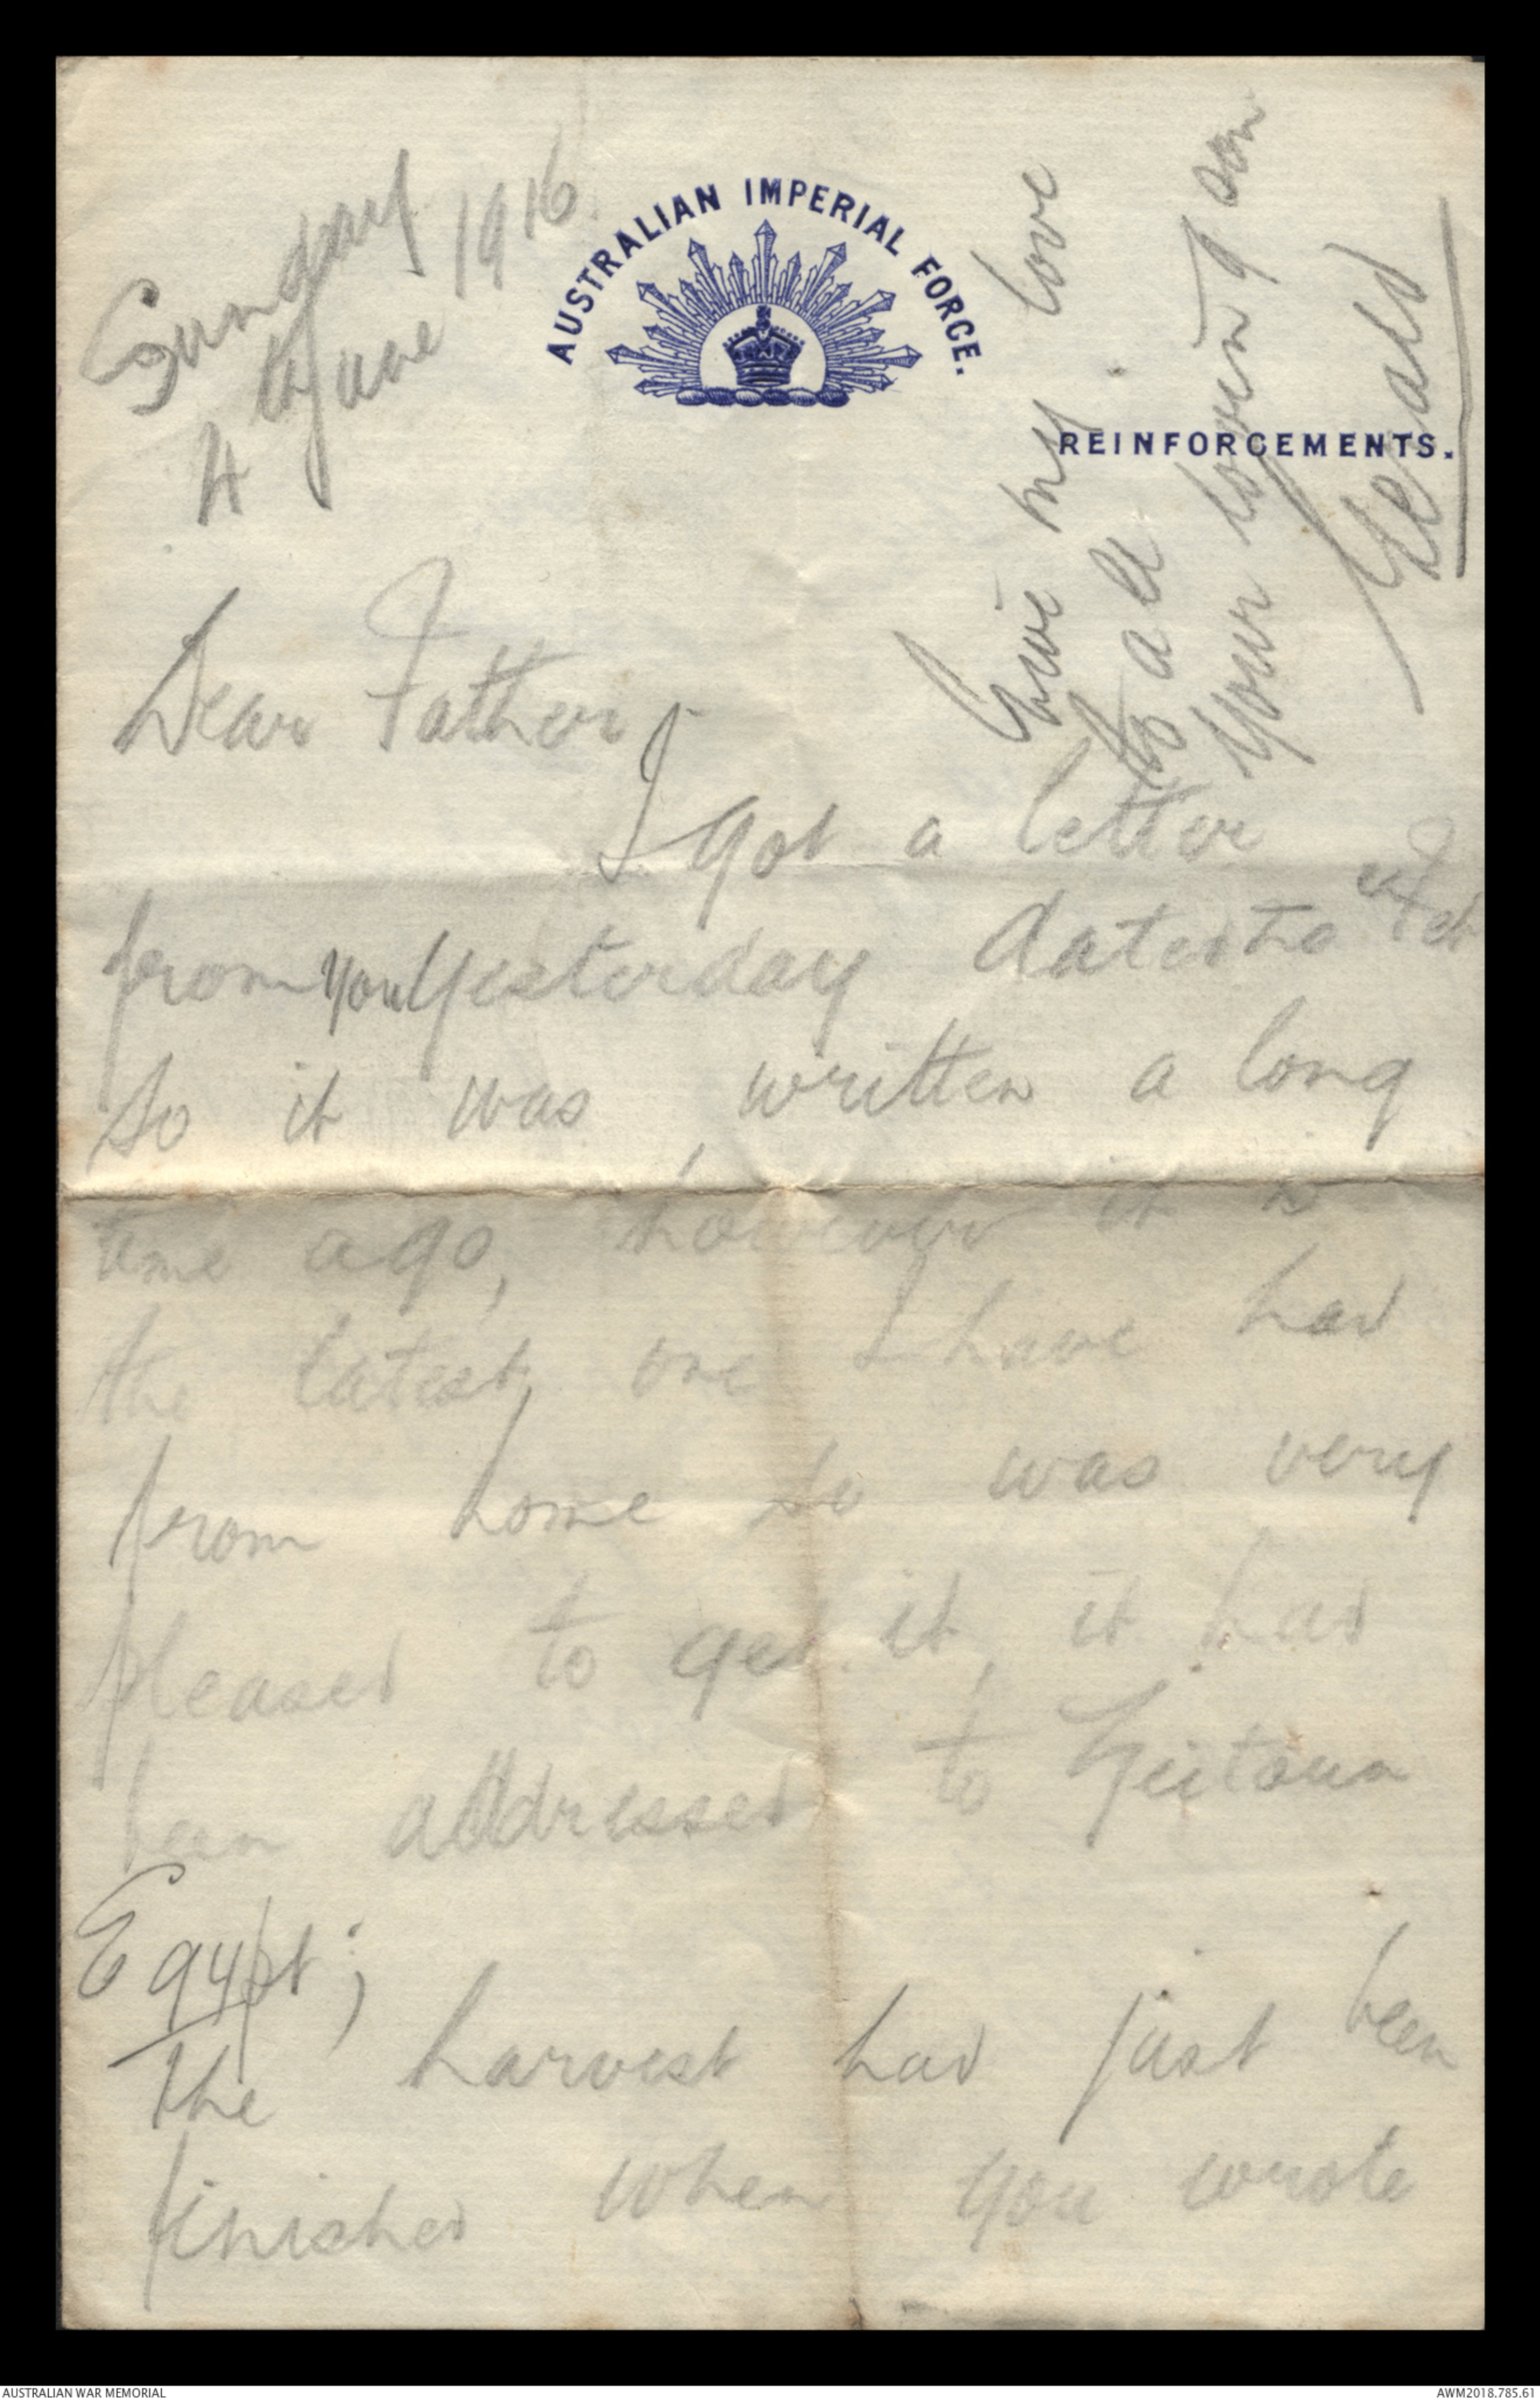 Sunday
4th June 1916.
AUSTRALIAN IMPERIAL FORCE.
REINFORCEMENTS.
Give my love
to all
Your loving son
Gerald
Dear Father,
I got a letter
from you yesterday dated Feb
so it was written a long
time ago, however it is
the latest one I have had
from home so was very
pleased to get it, it had
been addressed to Zeitoun
Egypt;
The harvest had just been
finished when you wrote
AUSTRALIAN WAR MEMORIAL
AWM2018.785.61